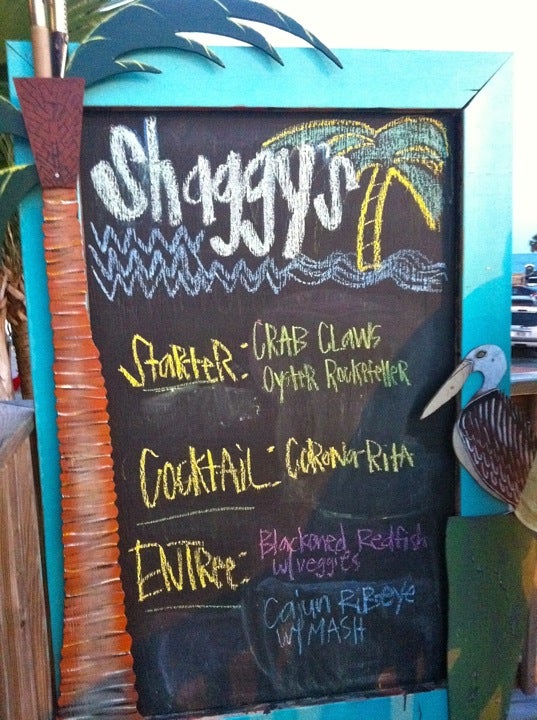 Shaggy's
Starter: CRAB Claws
Oyster Rockefeller
Cocktail: Corona-Rita
ENTRee: Blackened Redfish
w/veggies
Cajun RiBeye
w/ MASH